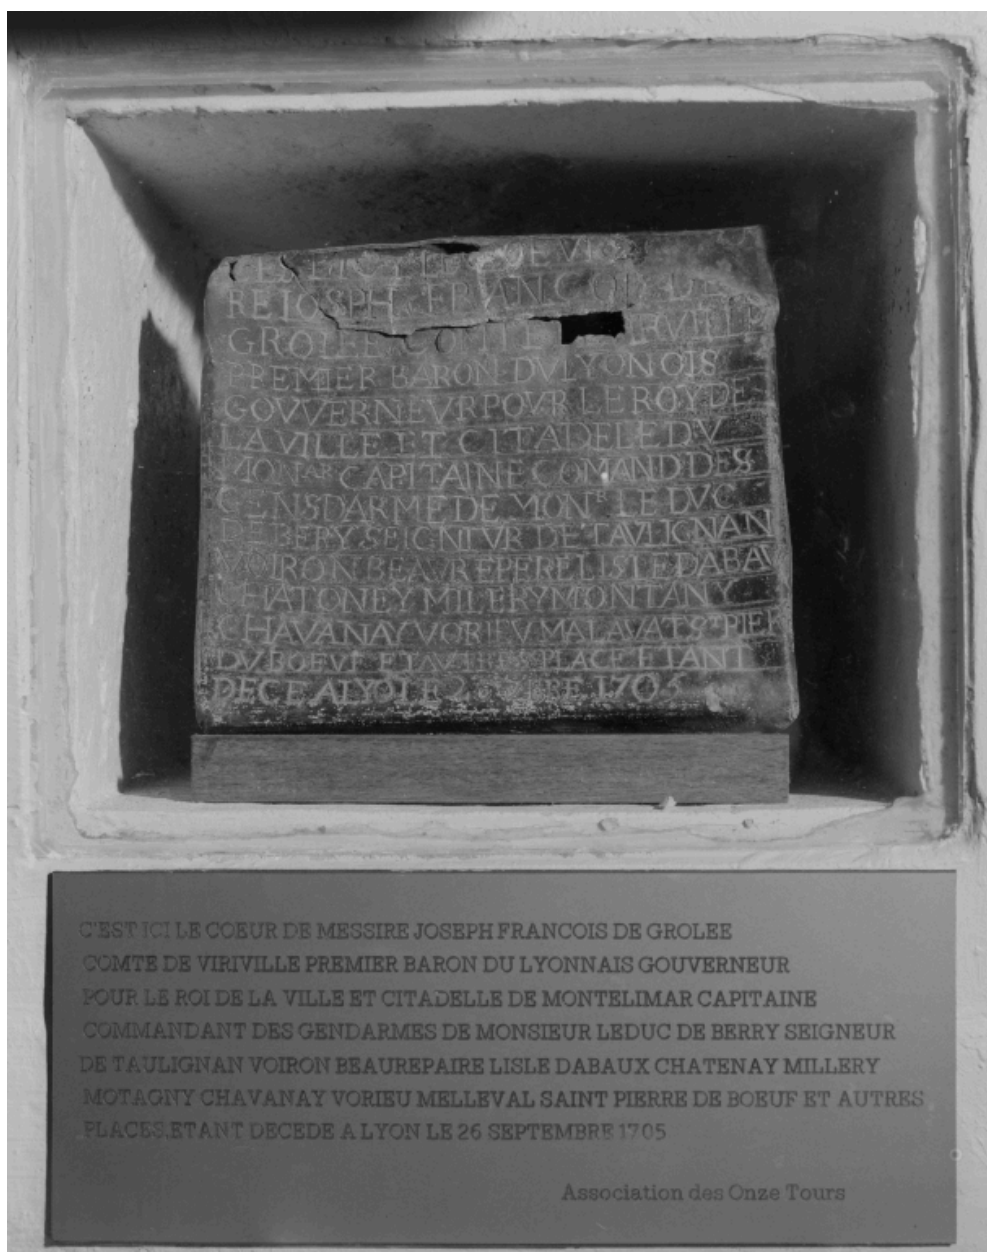 RE IOSPH & FRVANCOIS DE
GROLEE COTTE
PREMIER BARON DVLYONOIS
GOVVERNEVR POVR LE ROY DE
LA VILLE ET CITADELE DV
MONAR CAPITAINE COMAND DES
GENS DARME DE MONR LE DVC
DE BERY SEIGNEVR DE TAVLIGNAN
VOIRON BEAVREPERE LISLE DABAV
CHATONEY MILERY MONTANY
CHAVANAY VORIEV MALAVAT ST PIER
DV BOEVF ET AVTRES PLACE ETANT
DECE A LYO LE 1705
C'EST ICI LE COEUR DE MESSIRE JOSEPH FRANCOIS DE GROLEE
COMTE DE VIRIVILLE PREMIER BARON DU LYONNAIS GOUVERNEUR
POUR LE ROI DE LA VILLE ET CITADELLE DE MONTELIMAR CAPITAINE
COMMANDANT DES GENDARMES DE MONSIEUR LEDUC DE BERRY SEIGNEUR
DE TAULIGNAN VOIRON BEAUREPAIRE LISLE DABAUX CHATENAY MILLERY
MOTAGNY CHAVANAY VORIEU MELLEVAL SAINT PIERRE DE BOEUF ET AUTRES
PLACES,ETANT DECEDE A LYON LE 26 SEPTEMBRE 1705
Association des Onze Tours